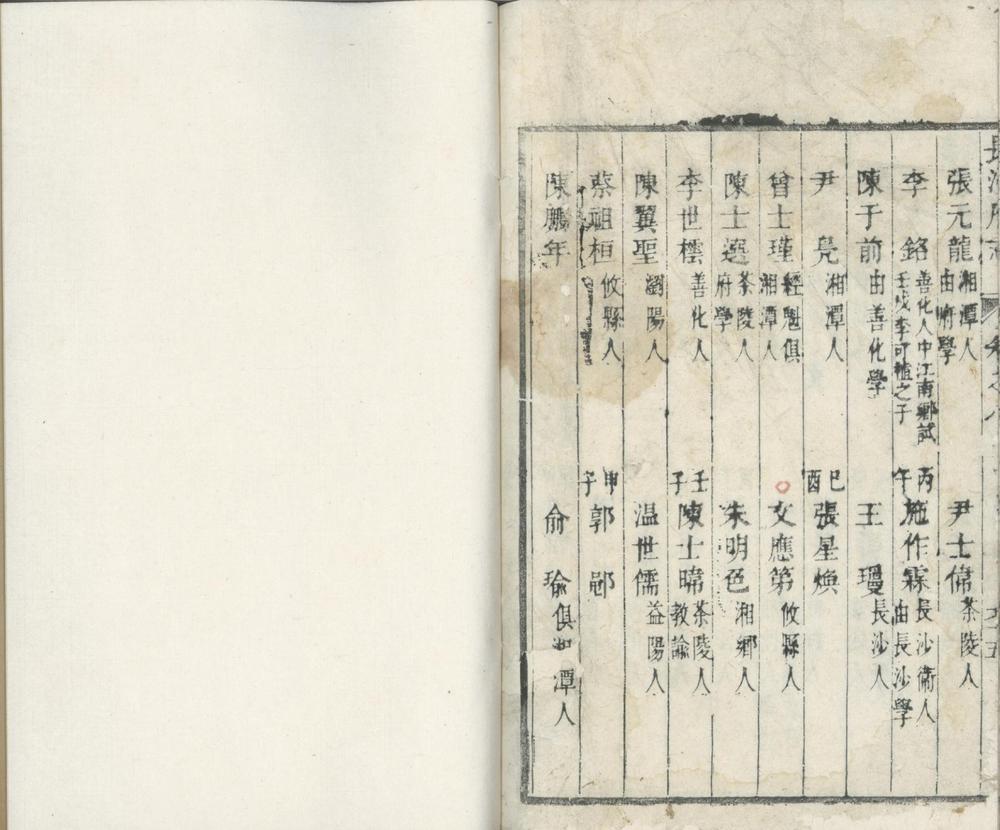 長沙府志 卷之八
張元龍 湘潭人由府學
尹士偉 茶陵人
李銘 善化人中江南鄉試壬戌李可植之子
丙午 施作霖 長沙衛人由長沙學
陳于前 由善化學
王璽 長沙人
尹晃 湘潭人
己酉 張星煥
曾士瑾 經魁俱湘潭人
文應第 攸縣人
陳士選 茶陵人府學
朱明色 湘鄉人
李世樗 善化人
壬子 陳士暐 茶陵人教諭
陳翼聖 瀏陽人
温世儒 益陽人
蔡祖桓 攸縣人
甲子 郭郧
陳鵬年
俞瑜 俱湘潭人